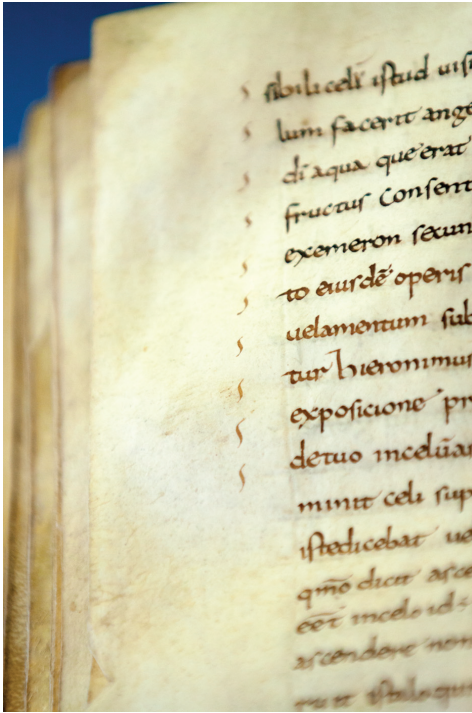 sibili celi istud uisi
lum facerit ange
di aqua que erat
fructus Consent
exemeron secun
to eiusdē operis
uelamentum sub
tur hieronimus
exposicione pr
detuo incelū ar
minit celi sup
iste dicebat ue
qmō dicit asce
eēt incelo id:
ascendere non